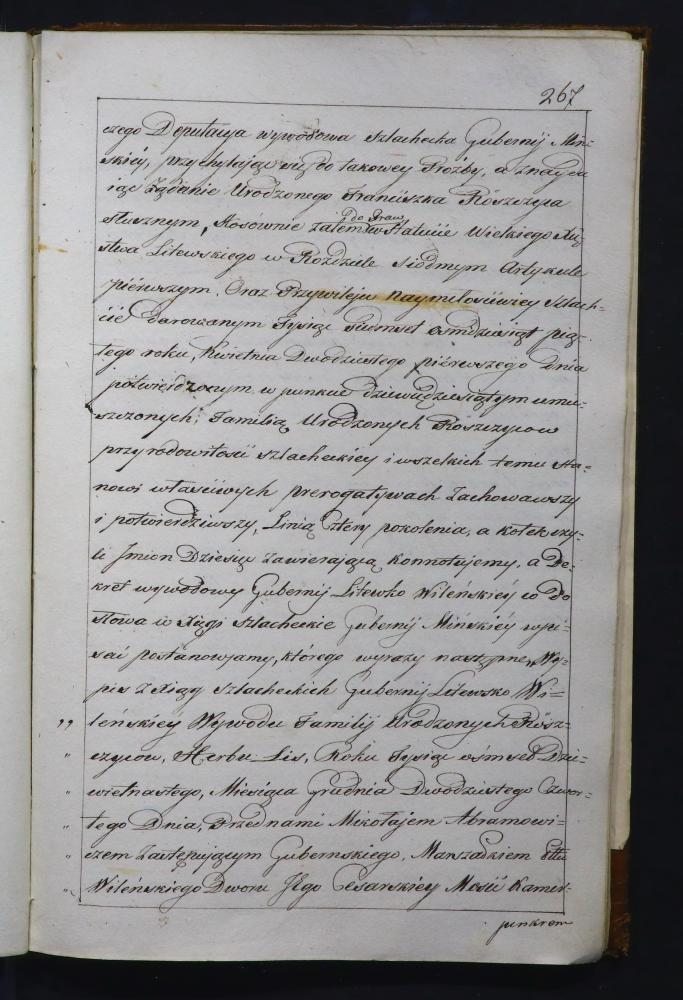 267
czego Deputacya wywodowa szlachecka Gubernij Miń=
skiéy, przychylaiąc się do takowey Prozby, a znaydu
iąc Żądanie Urodzonego Franciszka Rószczyca
słusznym, Stosównie zatem do Praw w Statucie Wielkiego Xię=
stwa Litewskiego w Rozdziele Siódmym Artykule
piérwszym. Oraz Przywileju Naymiłościwiey Szlach=
cie darowanym Tysiąc Siedmset osmdziesiąt pią=
tego roku, Kwietnia Dwódziestego piérwszego Dnia
potwierdzonym w punkcie dziewiędziesiątym umie=
szczonych; Familią Urodzonych Rószczyców
przy rodowitości szlacheckiéy i wszelkich temu Sta=
nowi właściwych prerogatywach Zachowawszy
i potwierdziwszy, Linią cztery pokolenia, a kolek czy=
li Imion Dziesięć zawierającą konnotujemy, a De=
kret wywodowy Gubernij Litewko Wileńskiéy co do
słowa w Xięgi szlacheckie Gubernij Mińskiéy wpi=
sać postanowiamy, którego wyrazy następne, Wy=
pis z Xiąg szlacheckich Gubernij Litewsko Wi=
„ leńskiey Wywodu Familij Urodzonych Rósz=
„ czyców, Herbu Lis, Roku Tysiąc ośmset Dzie=
„ wietnastego, Miesiąca Grudnia Dwódziestego Czwar=
„ tego Dnia, Przed nami Mikołajem Abramowi=
„ czem Zastępuiącym Gubernskiego, Marszałkiem Pttu
„ Wileńskiego Dworu Jego Cesarskiéy Mości Kamer=
junkrem